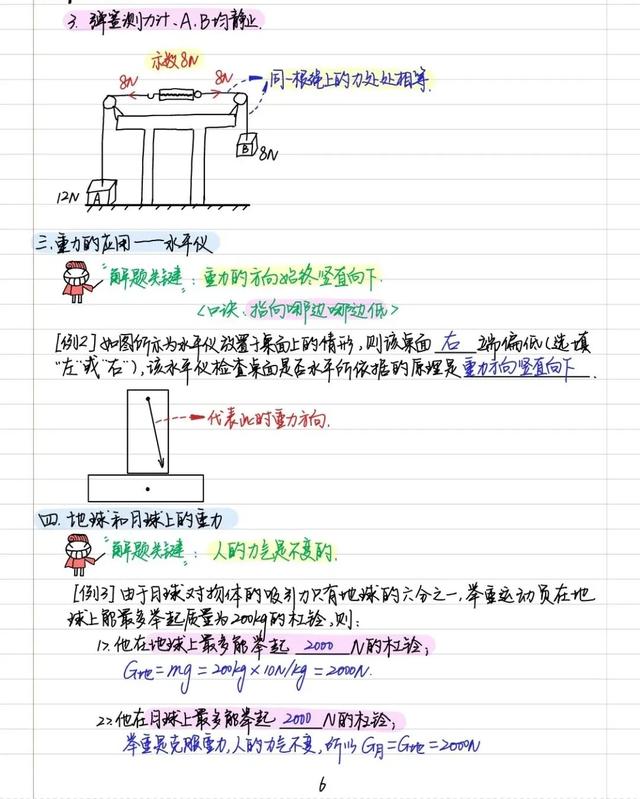 3. 弹簧测力计、A、B均静止.
示数8N
8N 8N 同一根绳上的力处处相等.
B 8N
12N A
三.重力的应用——水平仪
解题关键：重力的方向始终竖直向下.
<口诀：指向哪边哪边低>
[例2]如图所示为水平仪放置于桌面上的情形,则该桌面 右 端偏低(选填
"左"或"右"),该水平仪检查桌面是否水平所依据的原理是重力方向竖直向下.
代表此时重力方向.
四.地球和月球上的重力
解题关键：人的力气是不变的.
[例3]由于月球对物体的吸引力只有地球的六分之一,举重运动员在地
球上能最多举起质量为200kg的杠铃,则:
1>.他在地球上最多能举起 2000 N的杠铃;
G地=mg=200kg×10N/kg=2000N.
2>.他在月球上最多能举起 2000 N的杠铃;
举重是克服重力,人的力气不变,所以G月=G地=2000N
6